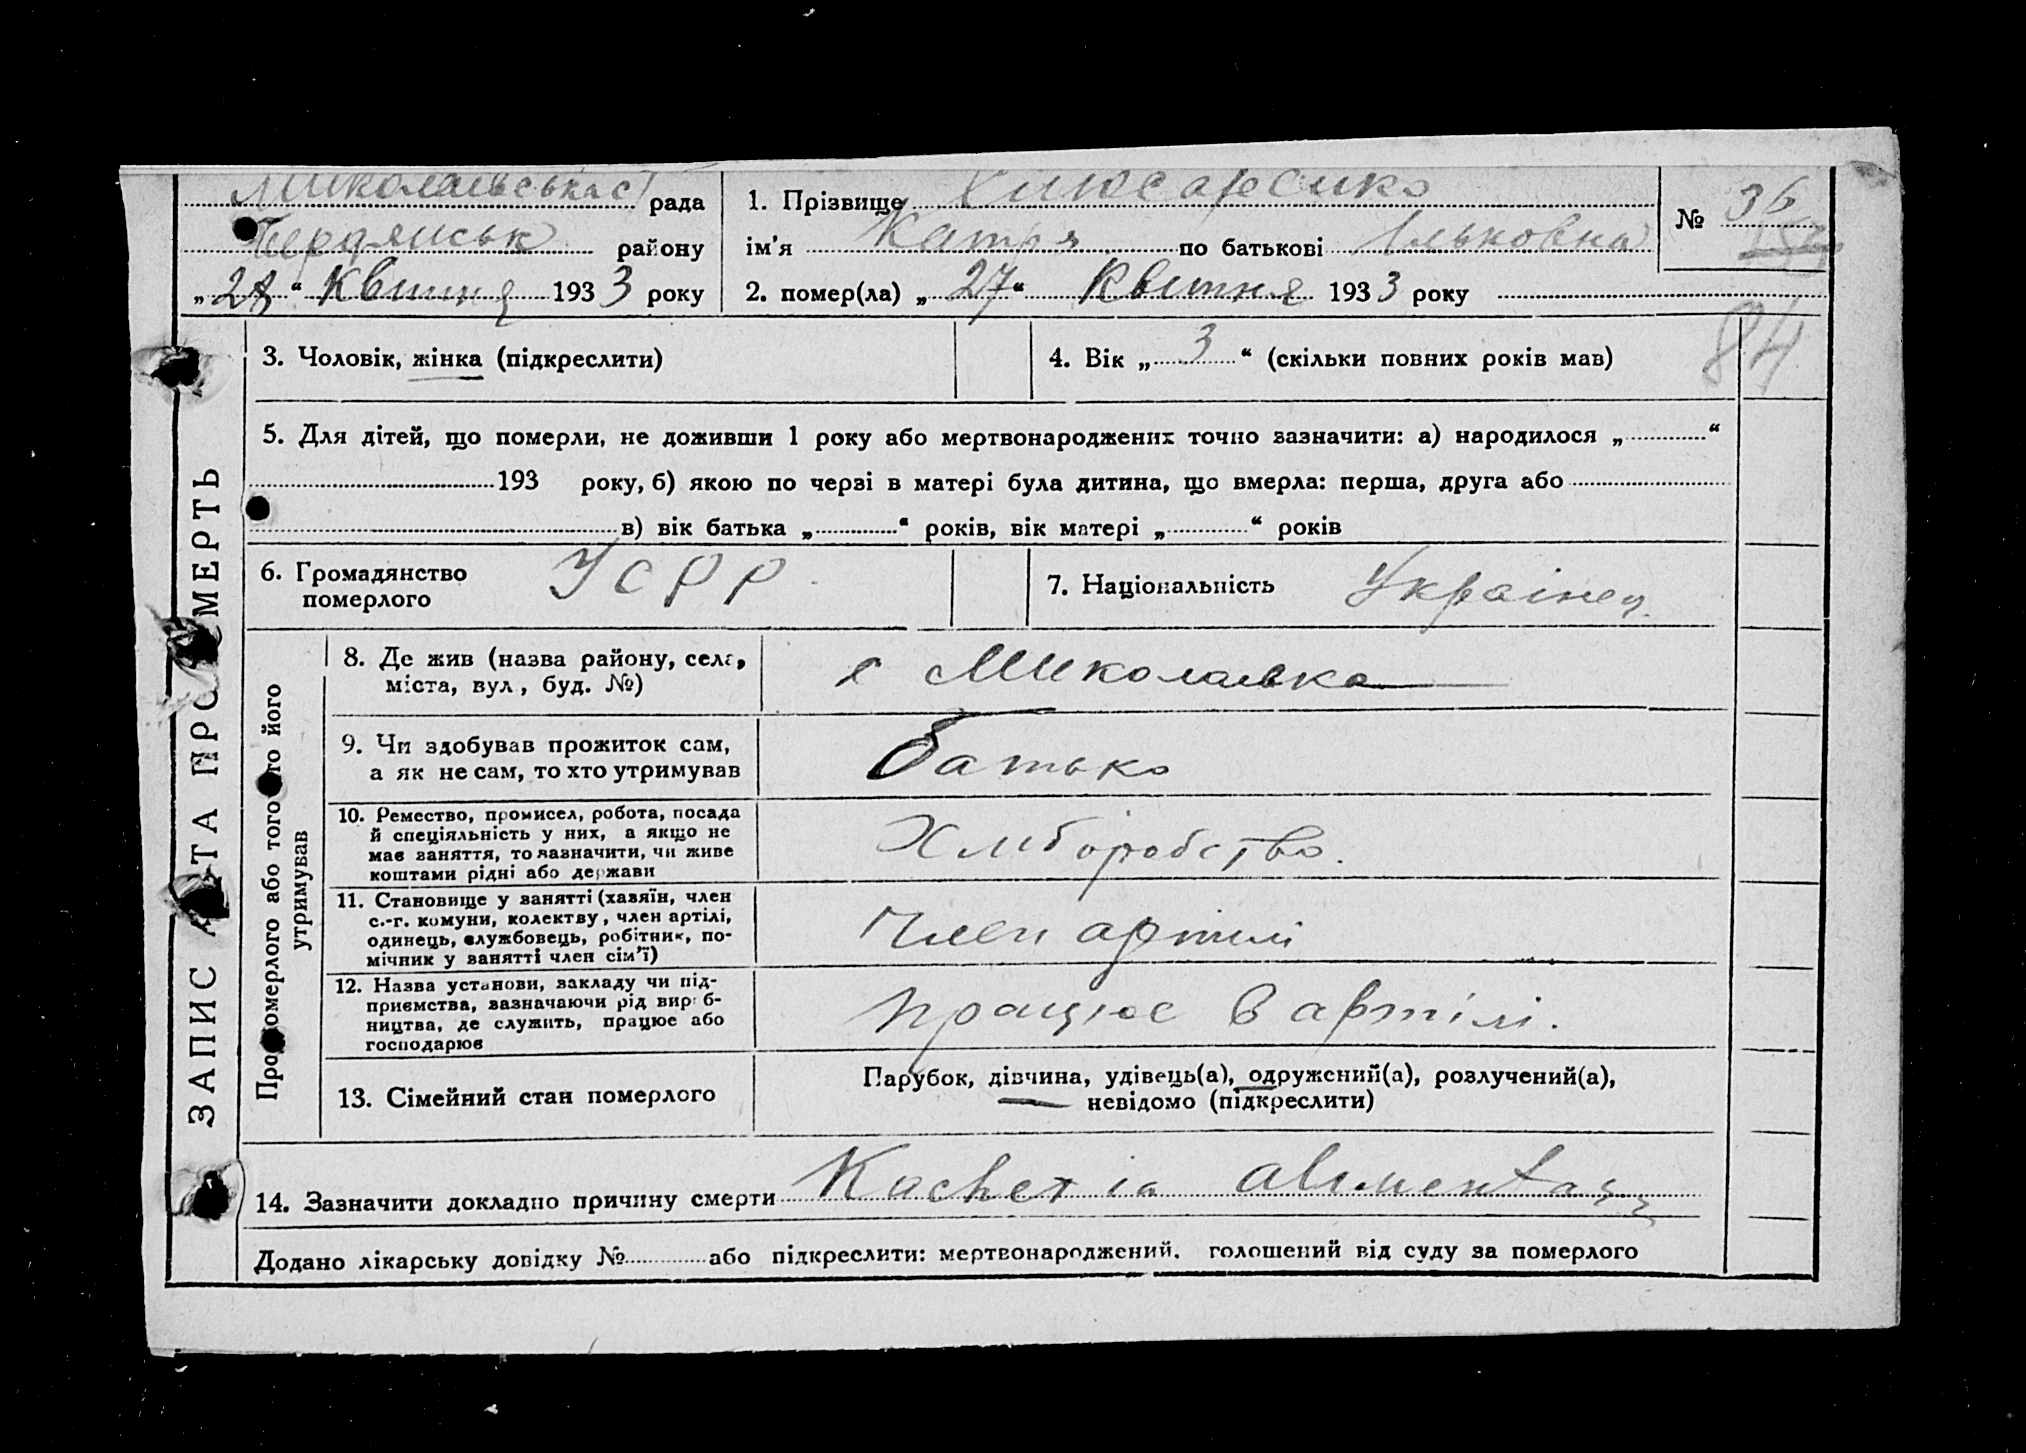 Миколаївська с/ рада
Бердянськ району
„28“ Квитня 1933 року
1. Прізвище
ім’я Катря по батькові Ільковна
2. помер(ла) „27“ Квитня 1933 року
№ 36
84
3. Чоловік, жінка (підкреслити)
4. Вік „3“ (скільки повних років мав)
5. Для дітей, що померли, не доживши 1 року або мертвонароджених точно зазначити: а) народилося „ “
193 року, б) якою по черзі в матері була дитина, що вмерла: перша, друга або
в) вік батька „ “ років, вік матері „ “ років
6. Громадянство
померлого
УСРР
7. Національність Українец
ЗАПИС АКТА ПРО СМЕРТЬ
Про померлого або того хто його
утримував
8. Де жив (назва району, села,
міста, вул., буд. №)
с Миколаевка
9. Чи здобував прожиток сам,
а як не сам, то хто утримував
батько
10. Ремество, промисел, робота, посада
й спеціяльність у них, а якщо не
має заняття, то зазначити, чи живе
коштами рідні або держави
Хліборобство.
11. Становище у занятті (хазяїн, член
с.-г. комуни, колектву, член артілі,
одинець, службовець, робітник, по-
мічник у занятті член сім’ї)
Член артилі
12. Назва установи, закладу чи під-
приємства, зазначаючи рід вироб-
ництва, де служить, працює або
господарює
працює в артілі.
13. Сімейний стан померлого
Парубок, дівчина, удівець(а), одружений(а), розлучений(а),
невідомо (підкреслити)
14. Зазначити докладно причину смерти Kachexia alimentary
Додано лікарську довідку № або підкреслити: мертвонароджений, голошений від суду за померлого